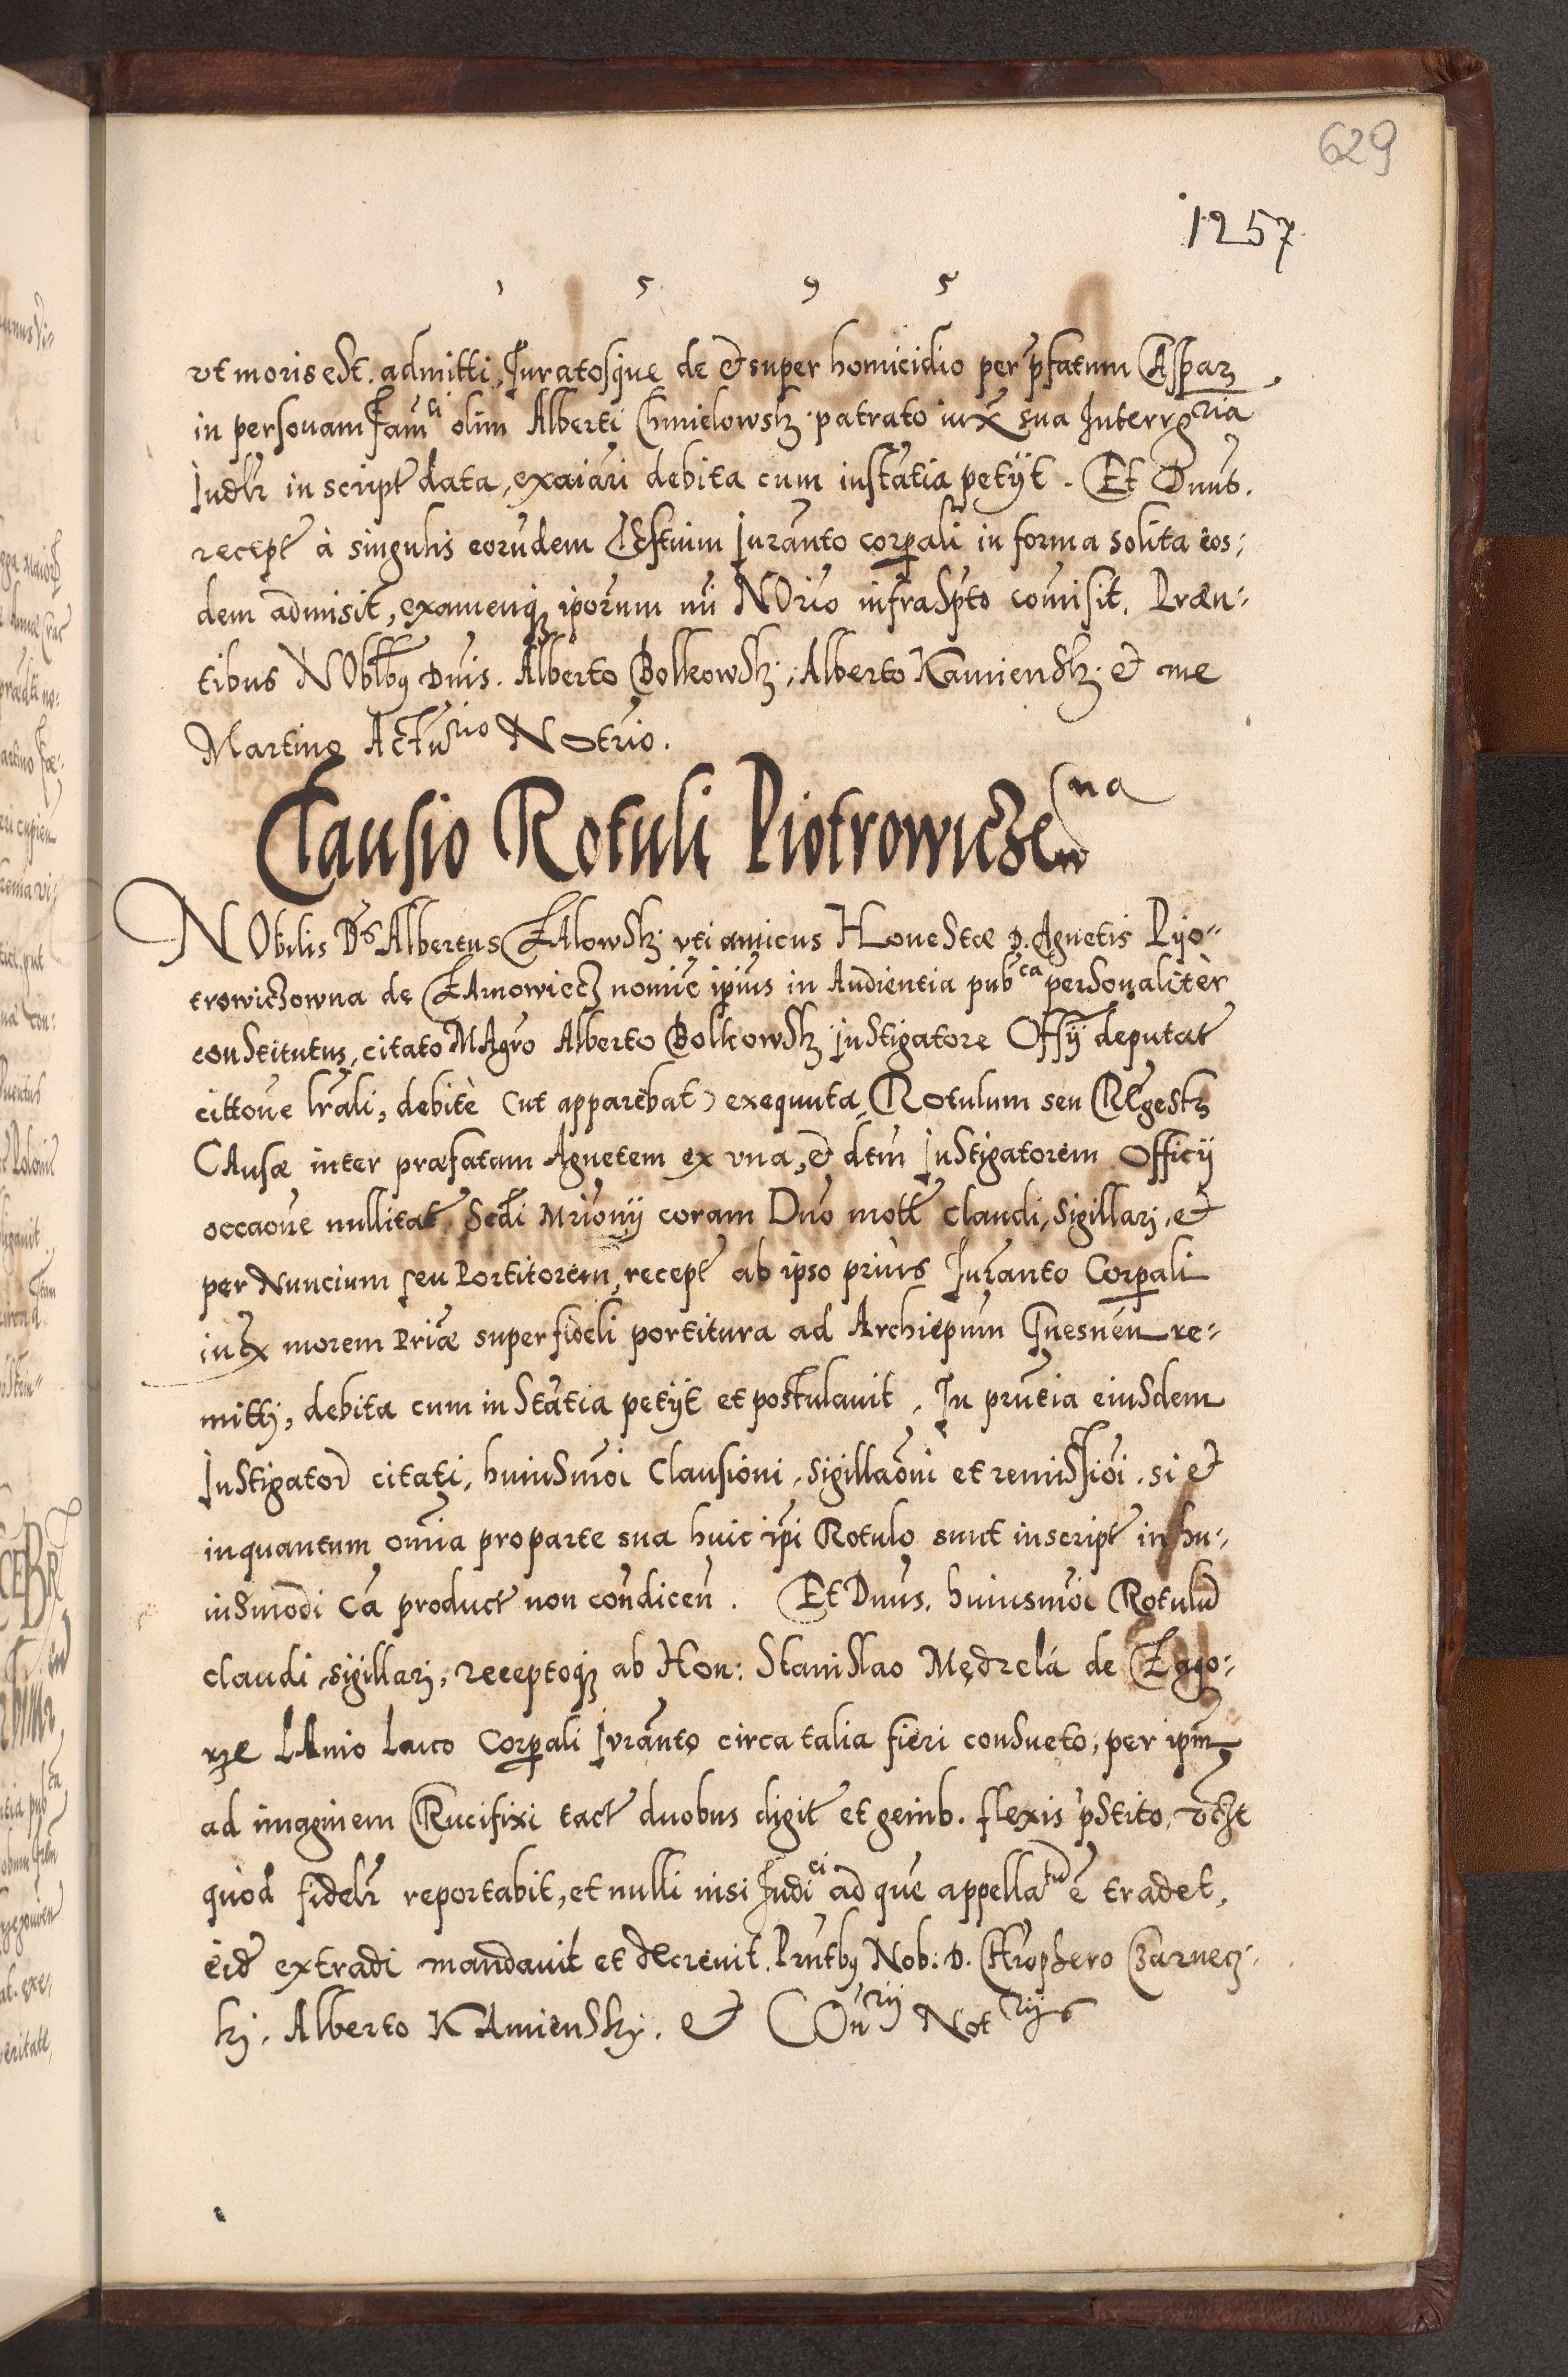 629
1257
1 5 9 5
vt moris est. admitti, Juratosque de et super homicidio per pfatum Caspar
in personam famti olim Alberti Chmielowsk. patrato iux sua Interrgria
Judlr in script data, exaiari debita cum instatia petyt. Et Dnus.
recept à singulis eorudem Testium Juranto corpali in forma solita eos:
dem admisit, examenq iporum mi NOrio infraspto comisit. Præn:
tibus NOblbq Dnis. Alberto Bolkowsk; Alberto Kamiensk. et me
Martino Acturio Notrio.
Clausio Rotuli Piotrowiczewna
NObilis Ds Albertus Załowsk. vti amicus Honestæ D. Agnetis Pyo:
trowiczowna de nomie ipius in Audientia pubca personalitèr
constitutus, citato MAgro Alberto Bolkowsk Instigatore Offy deputat
cittone lrali, debitè (ut apparebat) exequuta, Rotulum seu REgestr
CAusæ inter præfatam Agnetem ex vna, et dtm Instigatorem Officij
occaone nullitat Mrionij coram Dno mott claudi, sigillari, et
per Nuncium seu Portitorem, recept ab ipso priùs Juranto Corpali
iuxt morem Priæ super fideli portitura ad Archiepum Gnesnen re:
mitti, debita cum instatia petyt et postulauit. In prntia eiusdem
Instigator citati, huiusmoi Clausioni, sigillaoni et remissioi. si et
inquantum omia pro parte sua huic ipi Rotulo sunt inscript in hu:
iusmodi ca product non condicen. Et Dnus. huiusmoi Rotulu
claudi, sigillari, receptoq ab Hon: Stanislao Mędrela de Zago:
rze LAnio Laico Corpali Juranto circa talia fieri consueto, per ipm
ad imaginem CRucifixi tact duobus digit et genib. flexis pstito,
quod fidelr reportabit, et nulli nisi Judici ad que appellatu e tradet,
eid extradi mandauit et dEcreuit. Prntbq Nob: D. Chrophero Czarnec:
ki. Alberto KAmiensky. et COnrij Notrijs